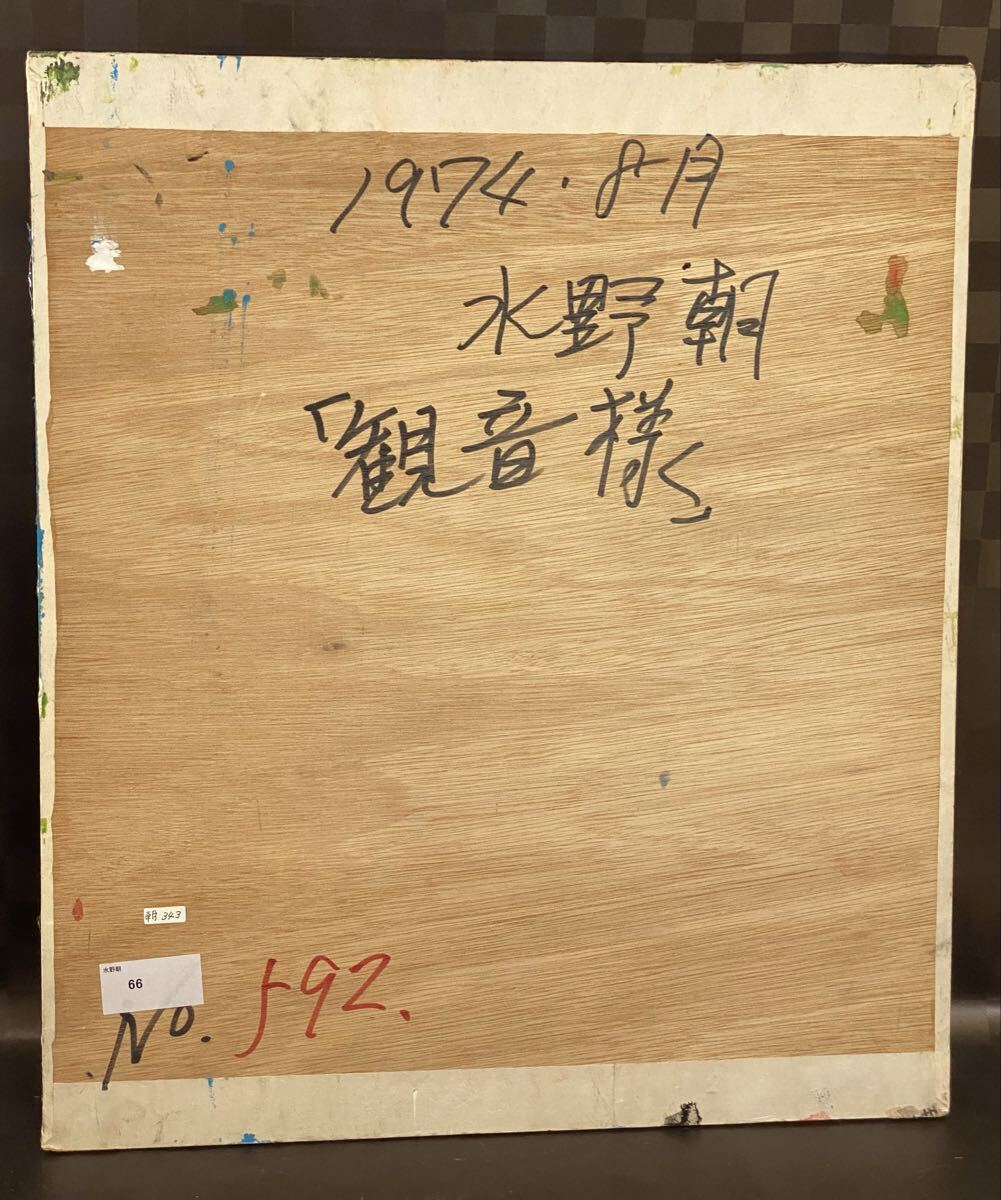 1974.8月
水野朝
「観音様」
朝 343
水野朝
66
No. 592.